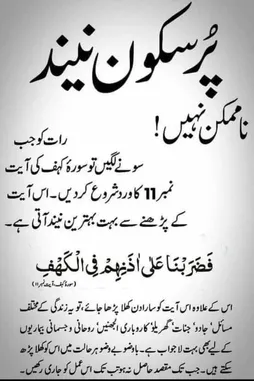 پُرسکون نیند
ناممکن نہیں!
رات کو جب
سونے لگیں تو سورۂ کہف کی آیت
نمبر 11 کا ورد شروع کر دیں۔ اس آیت
کے پڑھنے سے بہت بہترین نیند آتی ہے۔
فَضَرَبْنَا عَلٰٓى اٰذَانِهِمْ فِى الْكَهْفِ
(سورۂ کہف، آیت نمبر ۱۱)
اس کے علاوہ اس آیت کو سارا دن کھلا پڑھا جائے، تو یہ زندگی کے مختلف
مسائل' جادو' جنات' گھریلو' کاروباری الجھنیں' روحانی و جسمانی بیماریوں
کے لیے بھی بہت لاجواب ہے۔ باوضو بے وضو ہر حالت میں اس کو کھلا پڑھ
سکتے ہیں۔ جب تک مقصد حاصل نہ ہو تب تک اس عمل کو جاری رکھیں۔